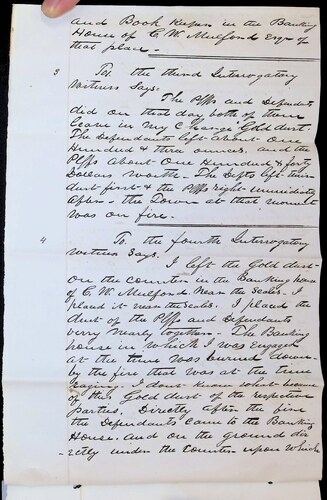 and Book Keeper in the Banking
House of C. W. Mulford Esqr of
that place.
3 To, the third Interrogatory
Witness Says:
The Plffs and Defendants
did on that day both of them
leave in my Charge Gold dust.
The Defendants left about One
Hundred & three ounces, and the
Plffs about One Hundred & forty
Dollars worth. The Defts left their
dust first & the Plffs right immediately
after. the Town at that moment
was on fire.
4 To. the fourth Interrogatory
Witness Says.
I left the Gold dust
on the counter in the Banking house
of C. W. Mulford. Near the Scales. I
placed it near the Scales. I placed the
dust of the Plffs and Defendants
very nearly together. The Banking
house in which I was engaged
at the time was burned down
by the fire that was at the time
raging. I dont know what became
of the Gold dust of the respective
parties. Directly after the fire
the Defendants came to the Banking
House. and on the ground dir
-ectly under the Counter upon which